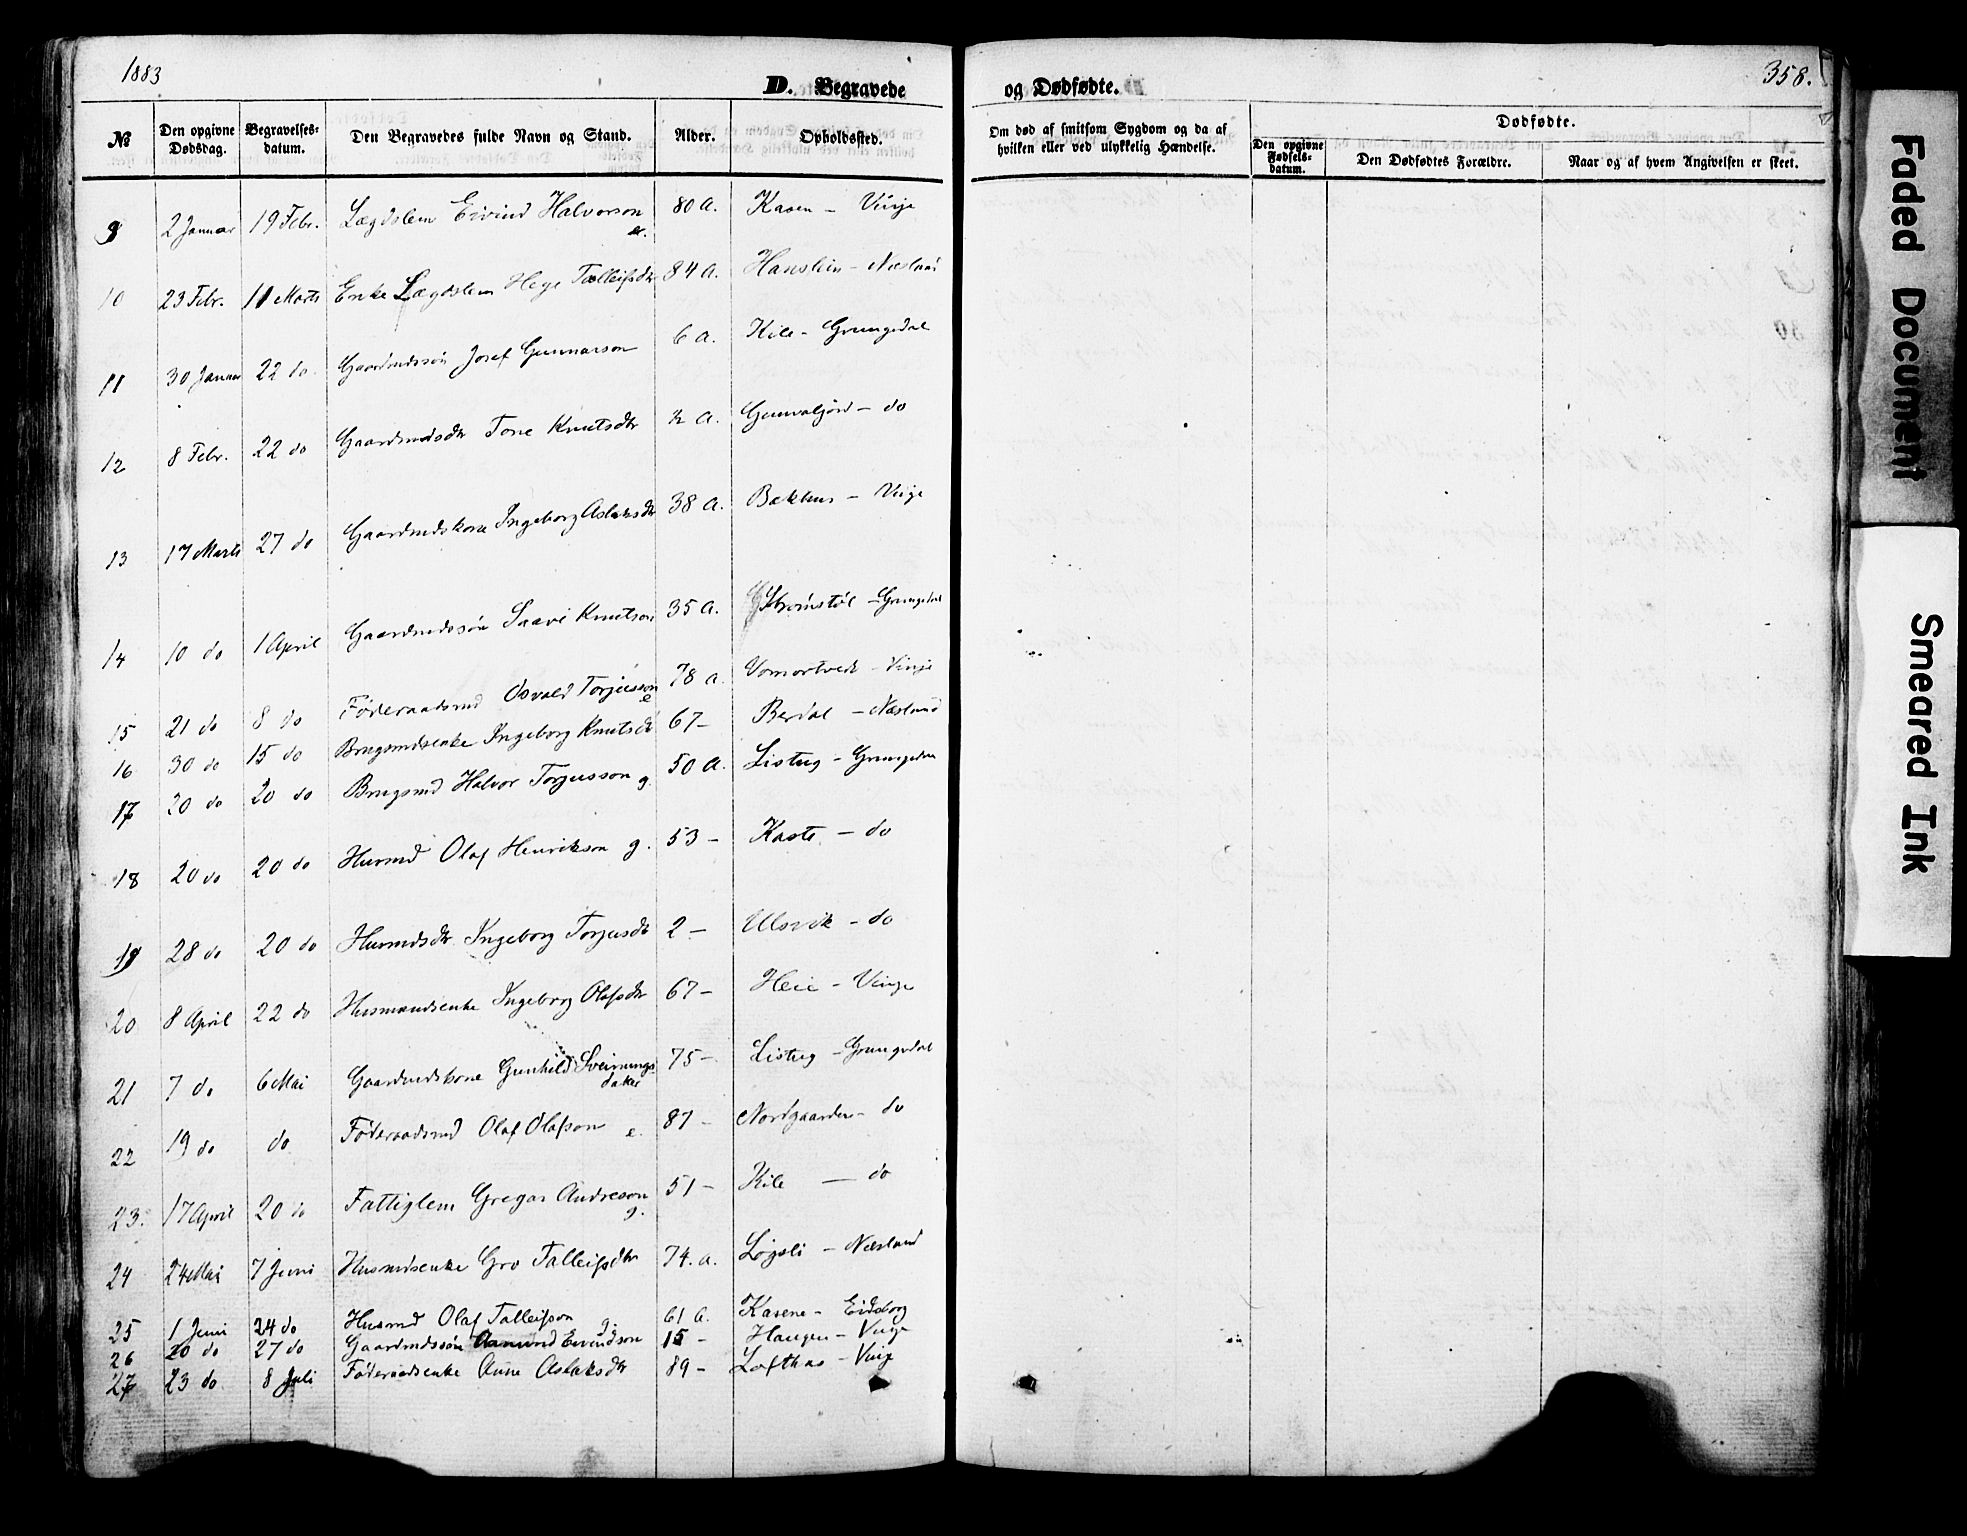 1883
358.
D. Begravede og Dødfødte.
№ Den opgivne Dødsdag. Begravelses-datum. Den Begravedes fulde Navn og Stand. Alder. Opholdssted. Om død af smitsom Sygdom og da af hvilken eller ved ulykkelig Hændelse. Dødfødte. Den opgivne Fødsels-datum. Den Dødfødtes Forældre. Naar og af hvem Angivelsen er skeet.
9 2 Januar 19 Febr. Lægdslem Eivind Halvorson e. 80 A. Kasen – Vinje
10 23 Febr. 11 Marts Enke Lægdslem Hege Talleifsdtr 84 A. – Næsland
11 30 Januar 22 do Gaardmdssön Josef Gunnarson 6 A. Kile – Grungedal
12 8 Febr. 22 do Gaardmdsdtr Tone Knutsdtr A. – do
13 17 Marts 27 do Gaardmdskone Ingeborg Aslaksdtr 38 A. Bakhus – Vinje
14 10 do 1 April Gaardmdssön Saave Knutson 35 A. – Grungedal
15 21 do 8 do Föderaadsmd Osvald Torjusson e 78 a. Vomartveit – Vinje
16 30 do 15 do Brugsmdsenke Ingeborg Knutsdtr 67 – Berdal – Næsland
17 20 do 20 do Brugsmd Halvor Torjusson g. 50 A. Listug – Grungedal
18 20 do 20 do Husmd Olaf Henrikson g. 53 – Kaste – do
19 28 do 20 do Husmdsdtr Ingeborg Torjusdtr 2 – Ulsvik – do
20 8 April 22 do Husmandsenke Ingeborg Olafsdtr 67 – Heie – Vinje
21 7 do 6 Mai Gaardmdskone Gunhild Sveinungs-datter 75 – Listug – Grungedal
22 19 do do Föderaadsmd Olaf Olafson e. 87 – Nordgaarden – do
23. 17 April 20 do Fattiglem Gregar Andreson g. 51 – Kile – do
24 24 Mai 7 Juni Husmdsenke Gro Talleifsdtr 74. a. Løgsli – Næsland
25 1 Juni 24 do Husmd Olaf Talleifson g. 61 A. Kasene – Eidsborg
26 20 do 27 do Gaardmdssön Aamund Eivindson 15 – Haugen – Vinje
27 23 do 8 Juli Föderaadsenke Anne Aslaksdtr 89 – Lofthus – Vinje
Faded Document
Smeared Ink